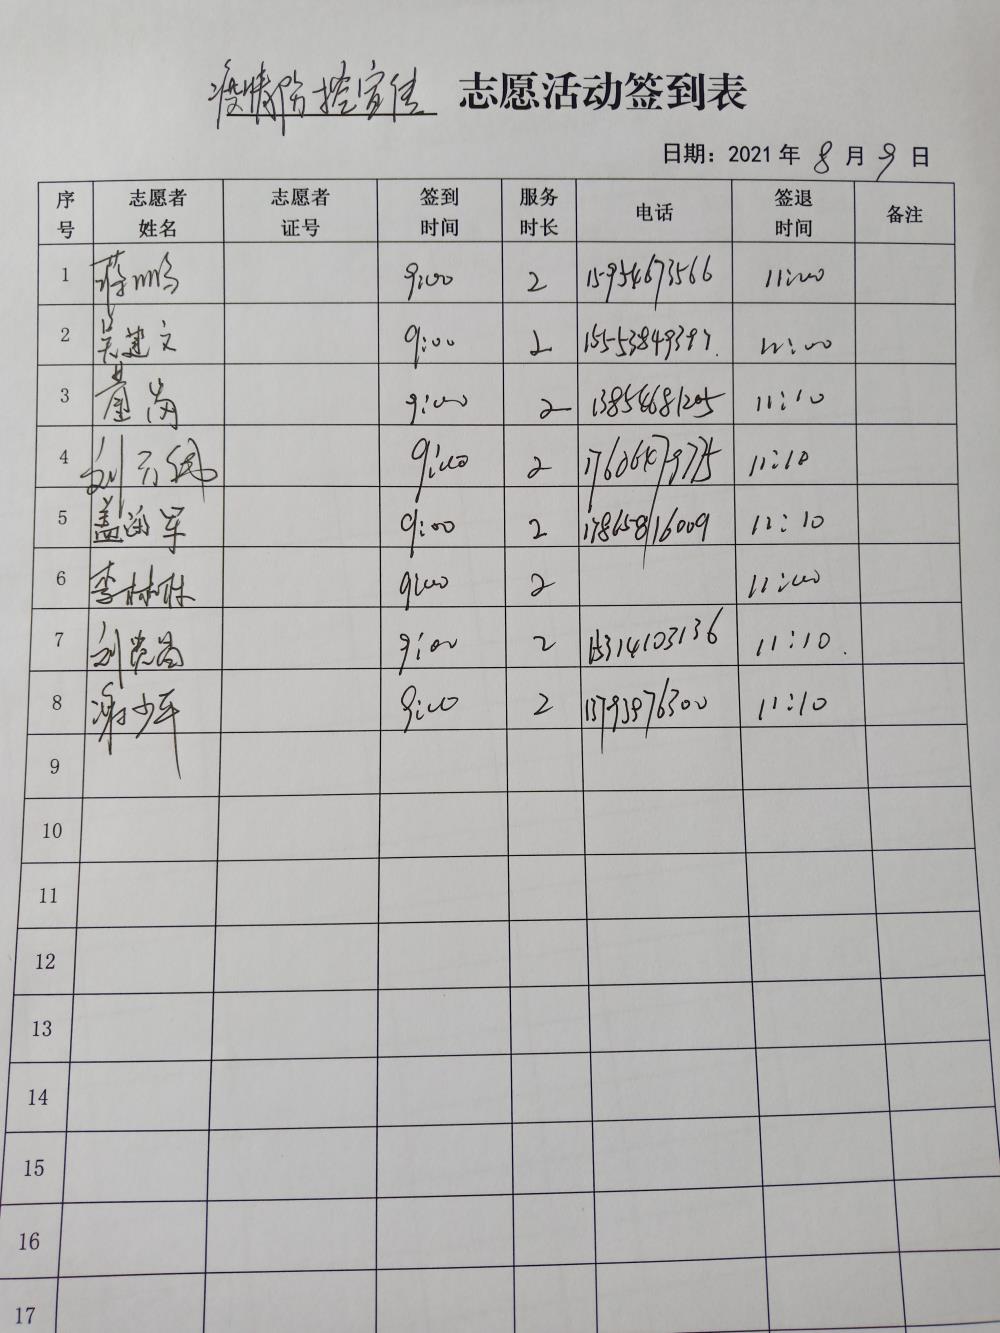 疫情防控宣传 志愿活动签到表
日期：2021 年 8 月 9 日
序号 志愿者姓名 志愿者证号 签到时间 服务时长 电话 签退时间 备注
1 蒋鹏 9:00 2 15954673566 11:00
2 吴建文 9:00 2 15553849397. 11:00
3 9:00 2 13854681205 11:10
4 9:00 2 11:10
5 盖海军 9:00 2 17865816009 11:10
6 李林林 9:00 2 11:00
7 9:00 2 15314103136 11:10.
8 谢少军 9:00 2 13793976300 11:10
9
10
11
12
13
14
15
16
17